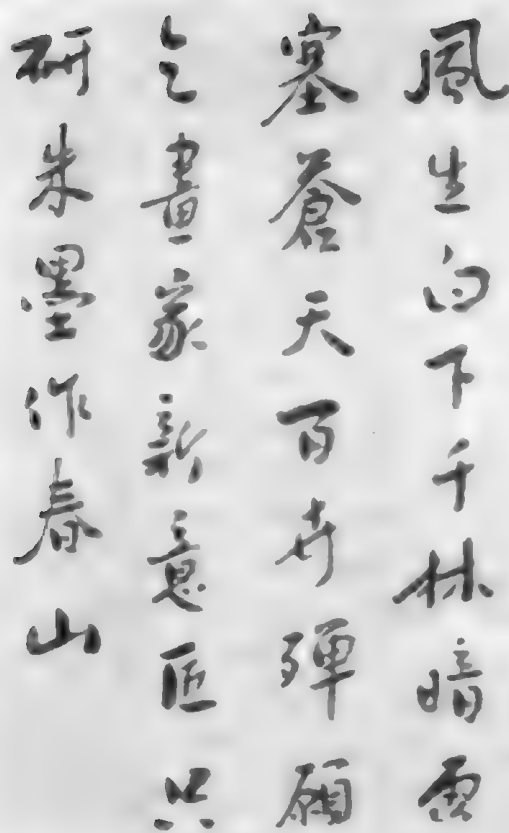 風生白下千林暗雲
塞蒼天百卉殫願
乞畫家新意匠只
研朱墨作春山